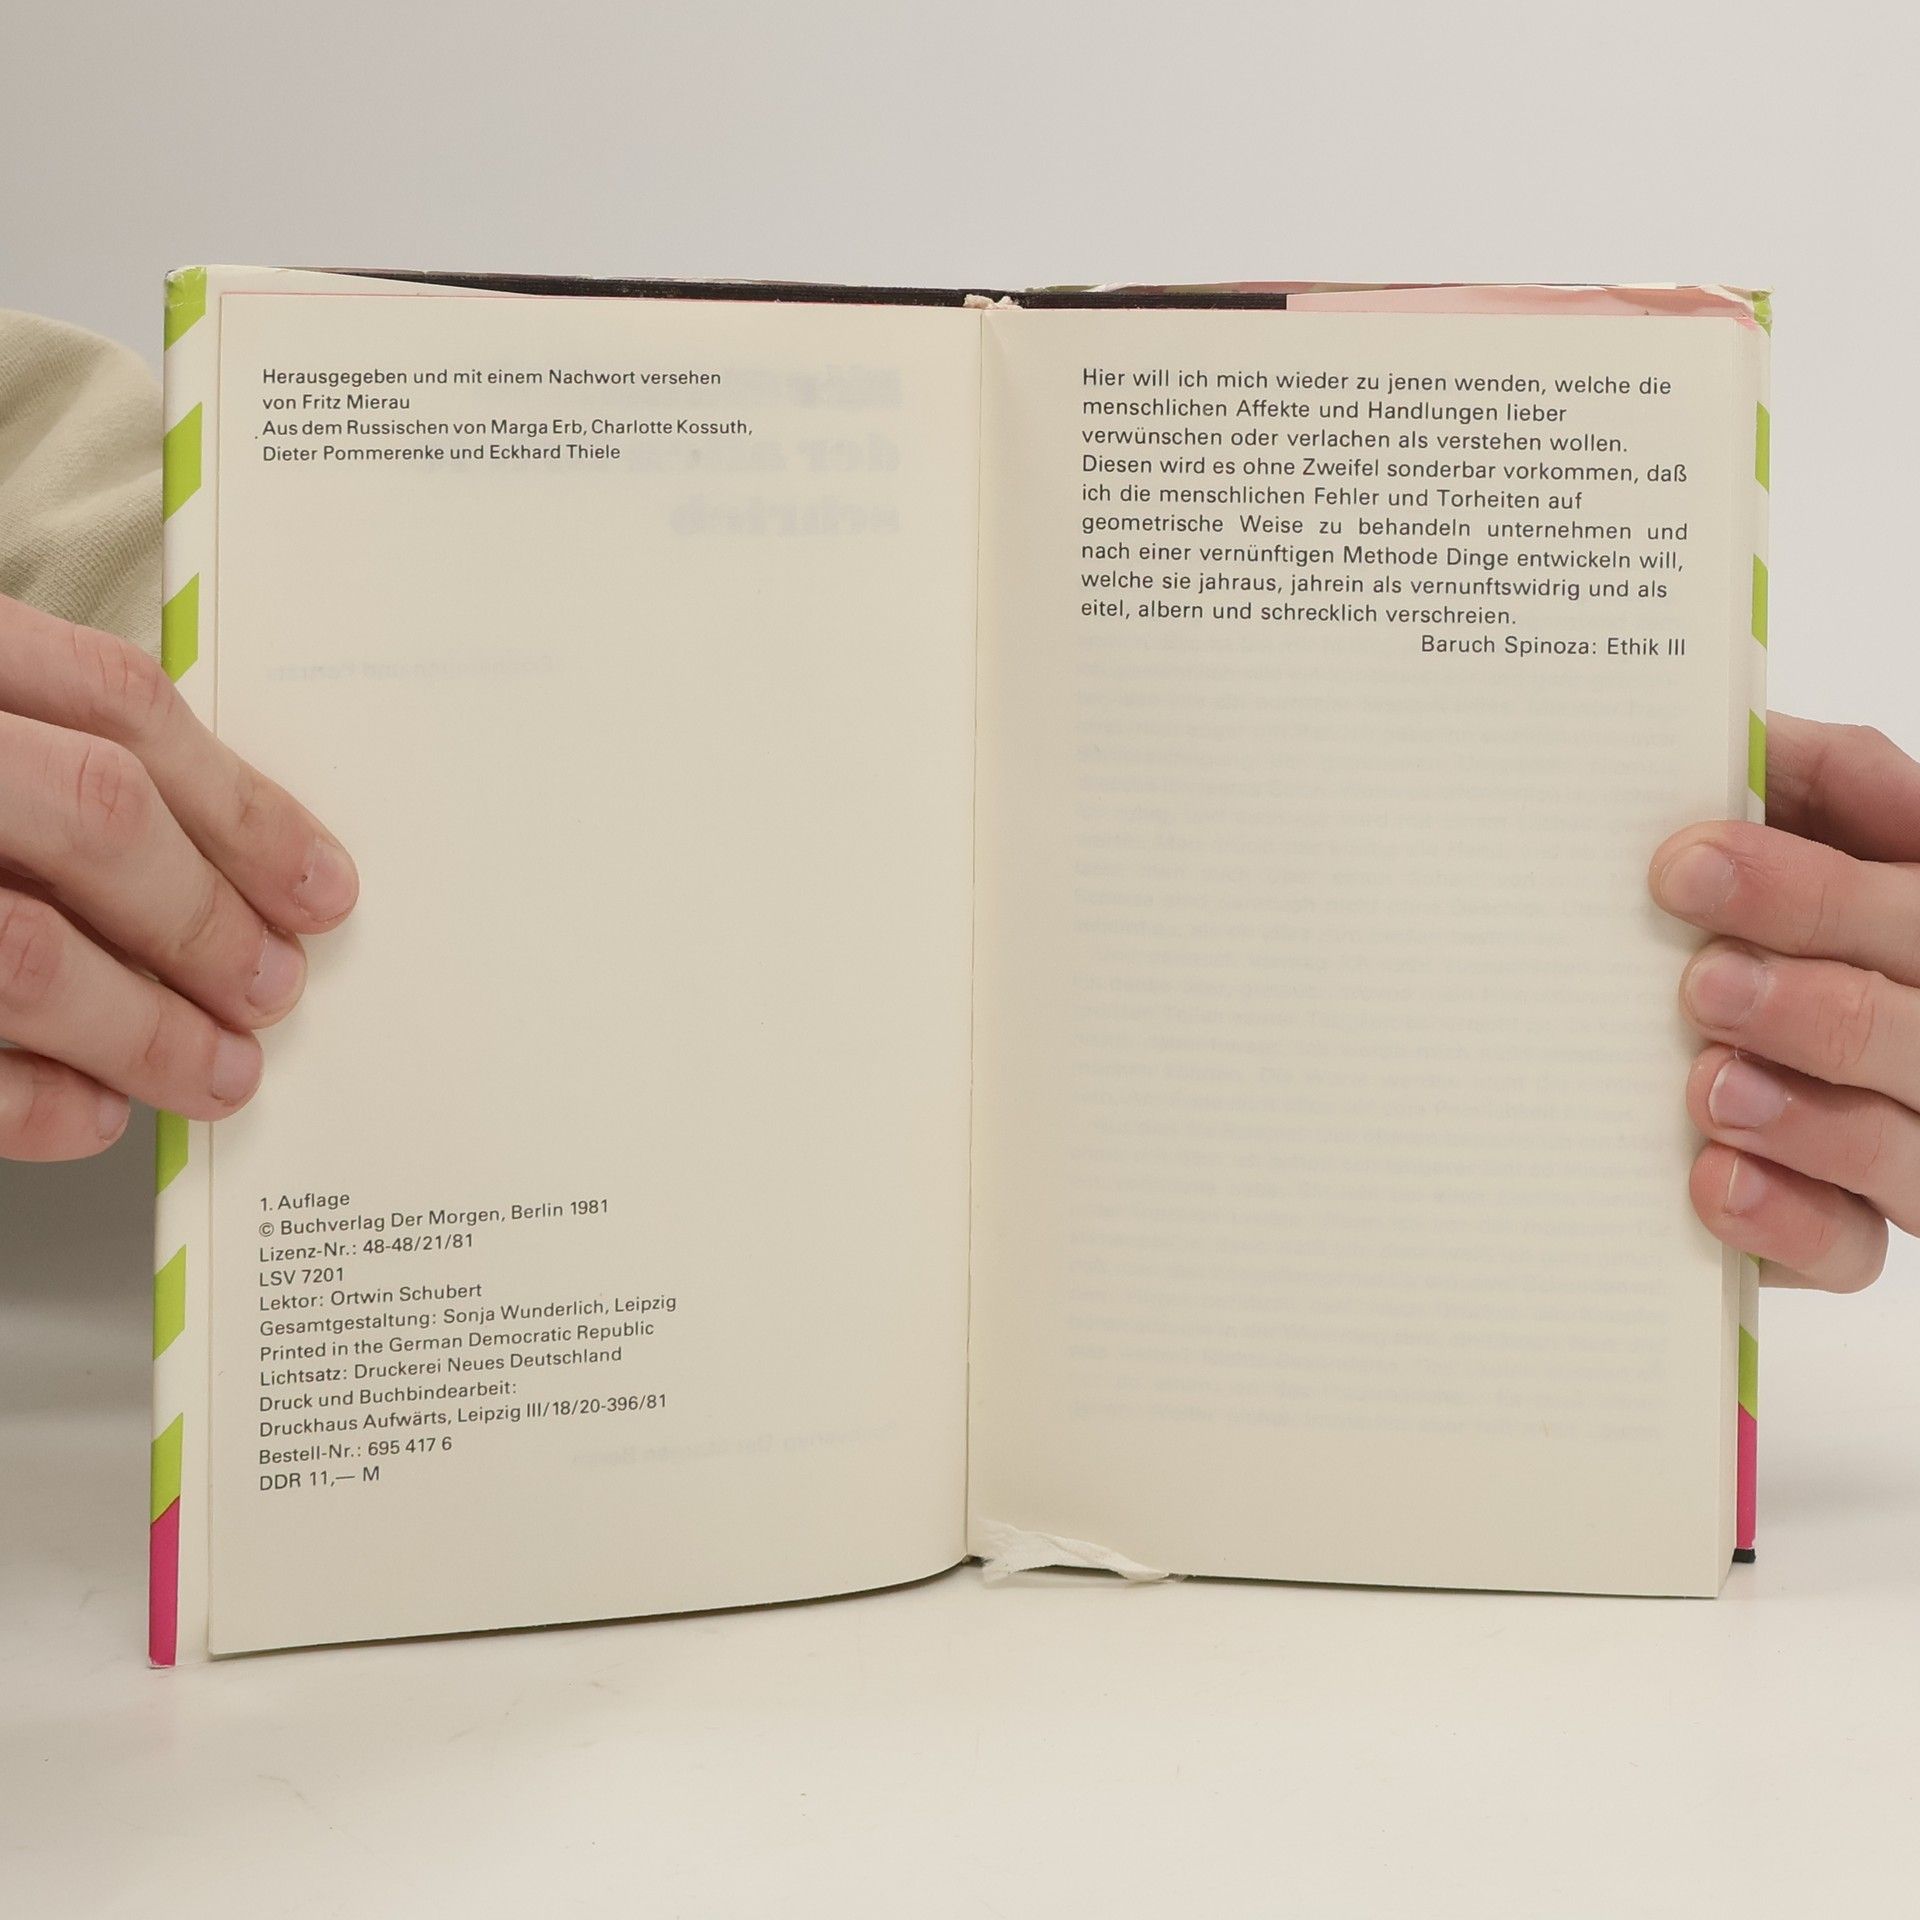 Herausgegeben und mit einem Nachwort versehen
von Fritz Mierau
Aus dem Russischen von Marga Erb, Charlotte Kossuth,
Dieter Pommerenke und Eckhard Thiele
1. Auflage
© Buchverlag Der Morgen, Berlin 1981
Lizenz-Nr.: 48-48/21/81
LSV 7201
Lektor: Ortwin Schubert
Gesamtgestaltung: Sonja Wunderlich, Leipzig
Printed in the German Democratic Republic
Lichtsatz: Druckerei Neues Deutschland
Druck und Buchbindearbeit:
Druckhaus Aufwärts, Leipzig III/18/20-396/81
Bestell-Nr.: 695 417 6
DDR 11,— M
Hier will ich mich wieder zu jenen wenden, welche die
menschlichen Affekte und Handlungen lieber
verwünschen oder verlachen als verstehen wollen.
Diesen wird es ohne Zweifel sonderbar vorkommen, daß
ich die menschlichen Fehler und Torheiten auf
geometrische Weise zu behandeln unternehmen und
nach einer vernünftigen Methode Dinge entwickeln will,
welche sie jahraus, jahrein als vernunftswidrig und als
eitel, albern und schrecklich verschreien.
Baruch Spinoza: Ethik III